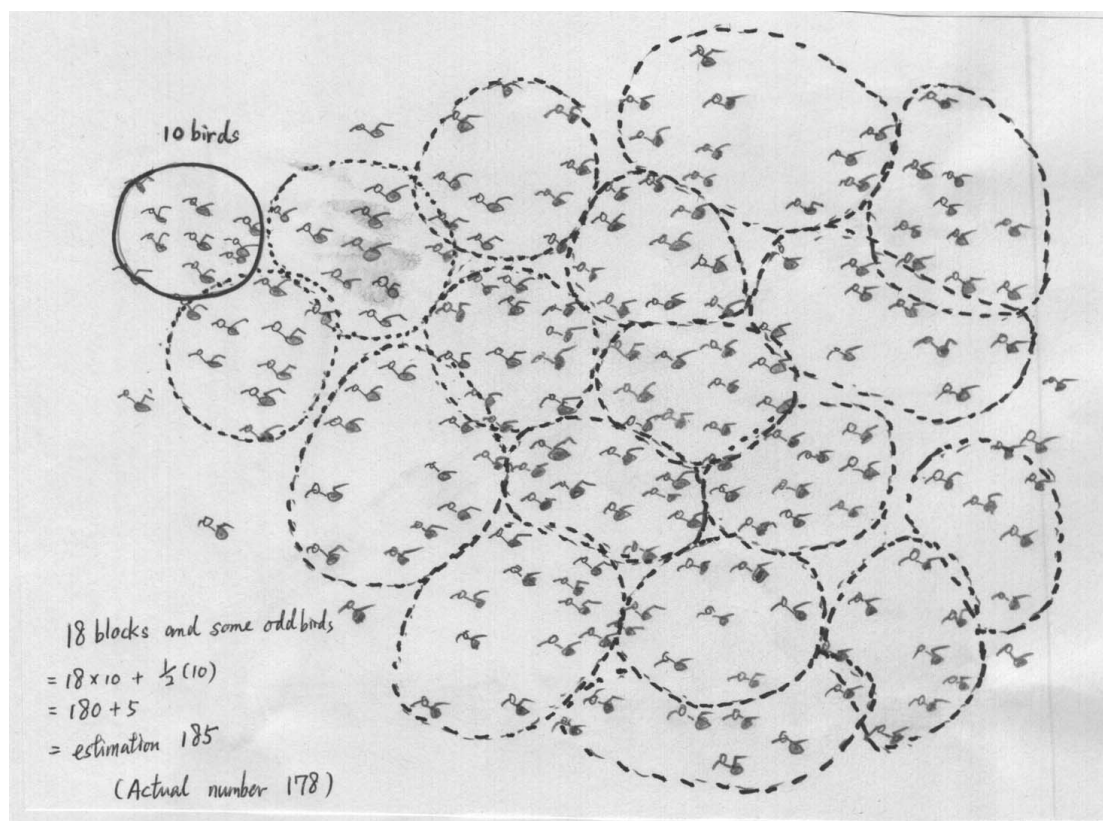 10 birds
18 blocks and some odd birds
= 18 × 10 + ½ (10)
= 180 + 5
= estimation 185
(Actual number 178)